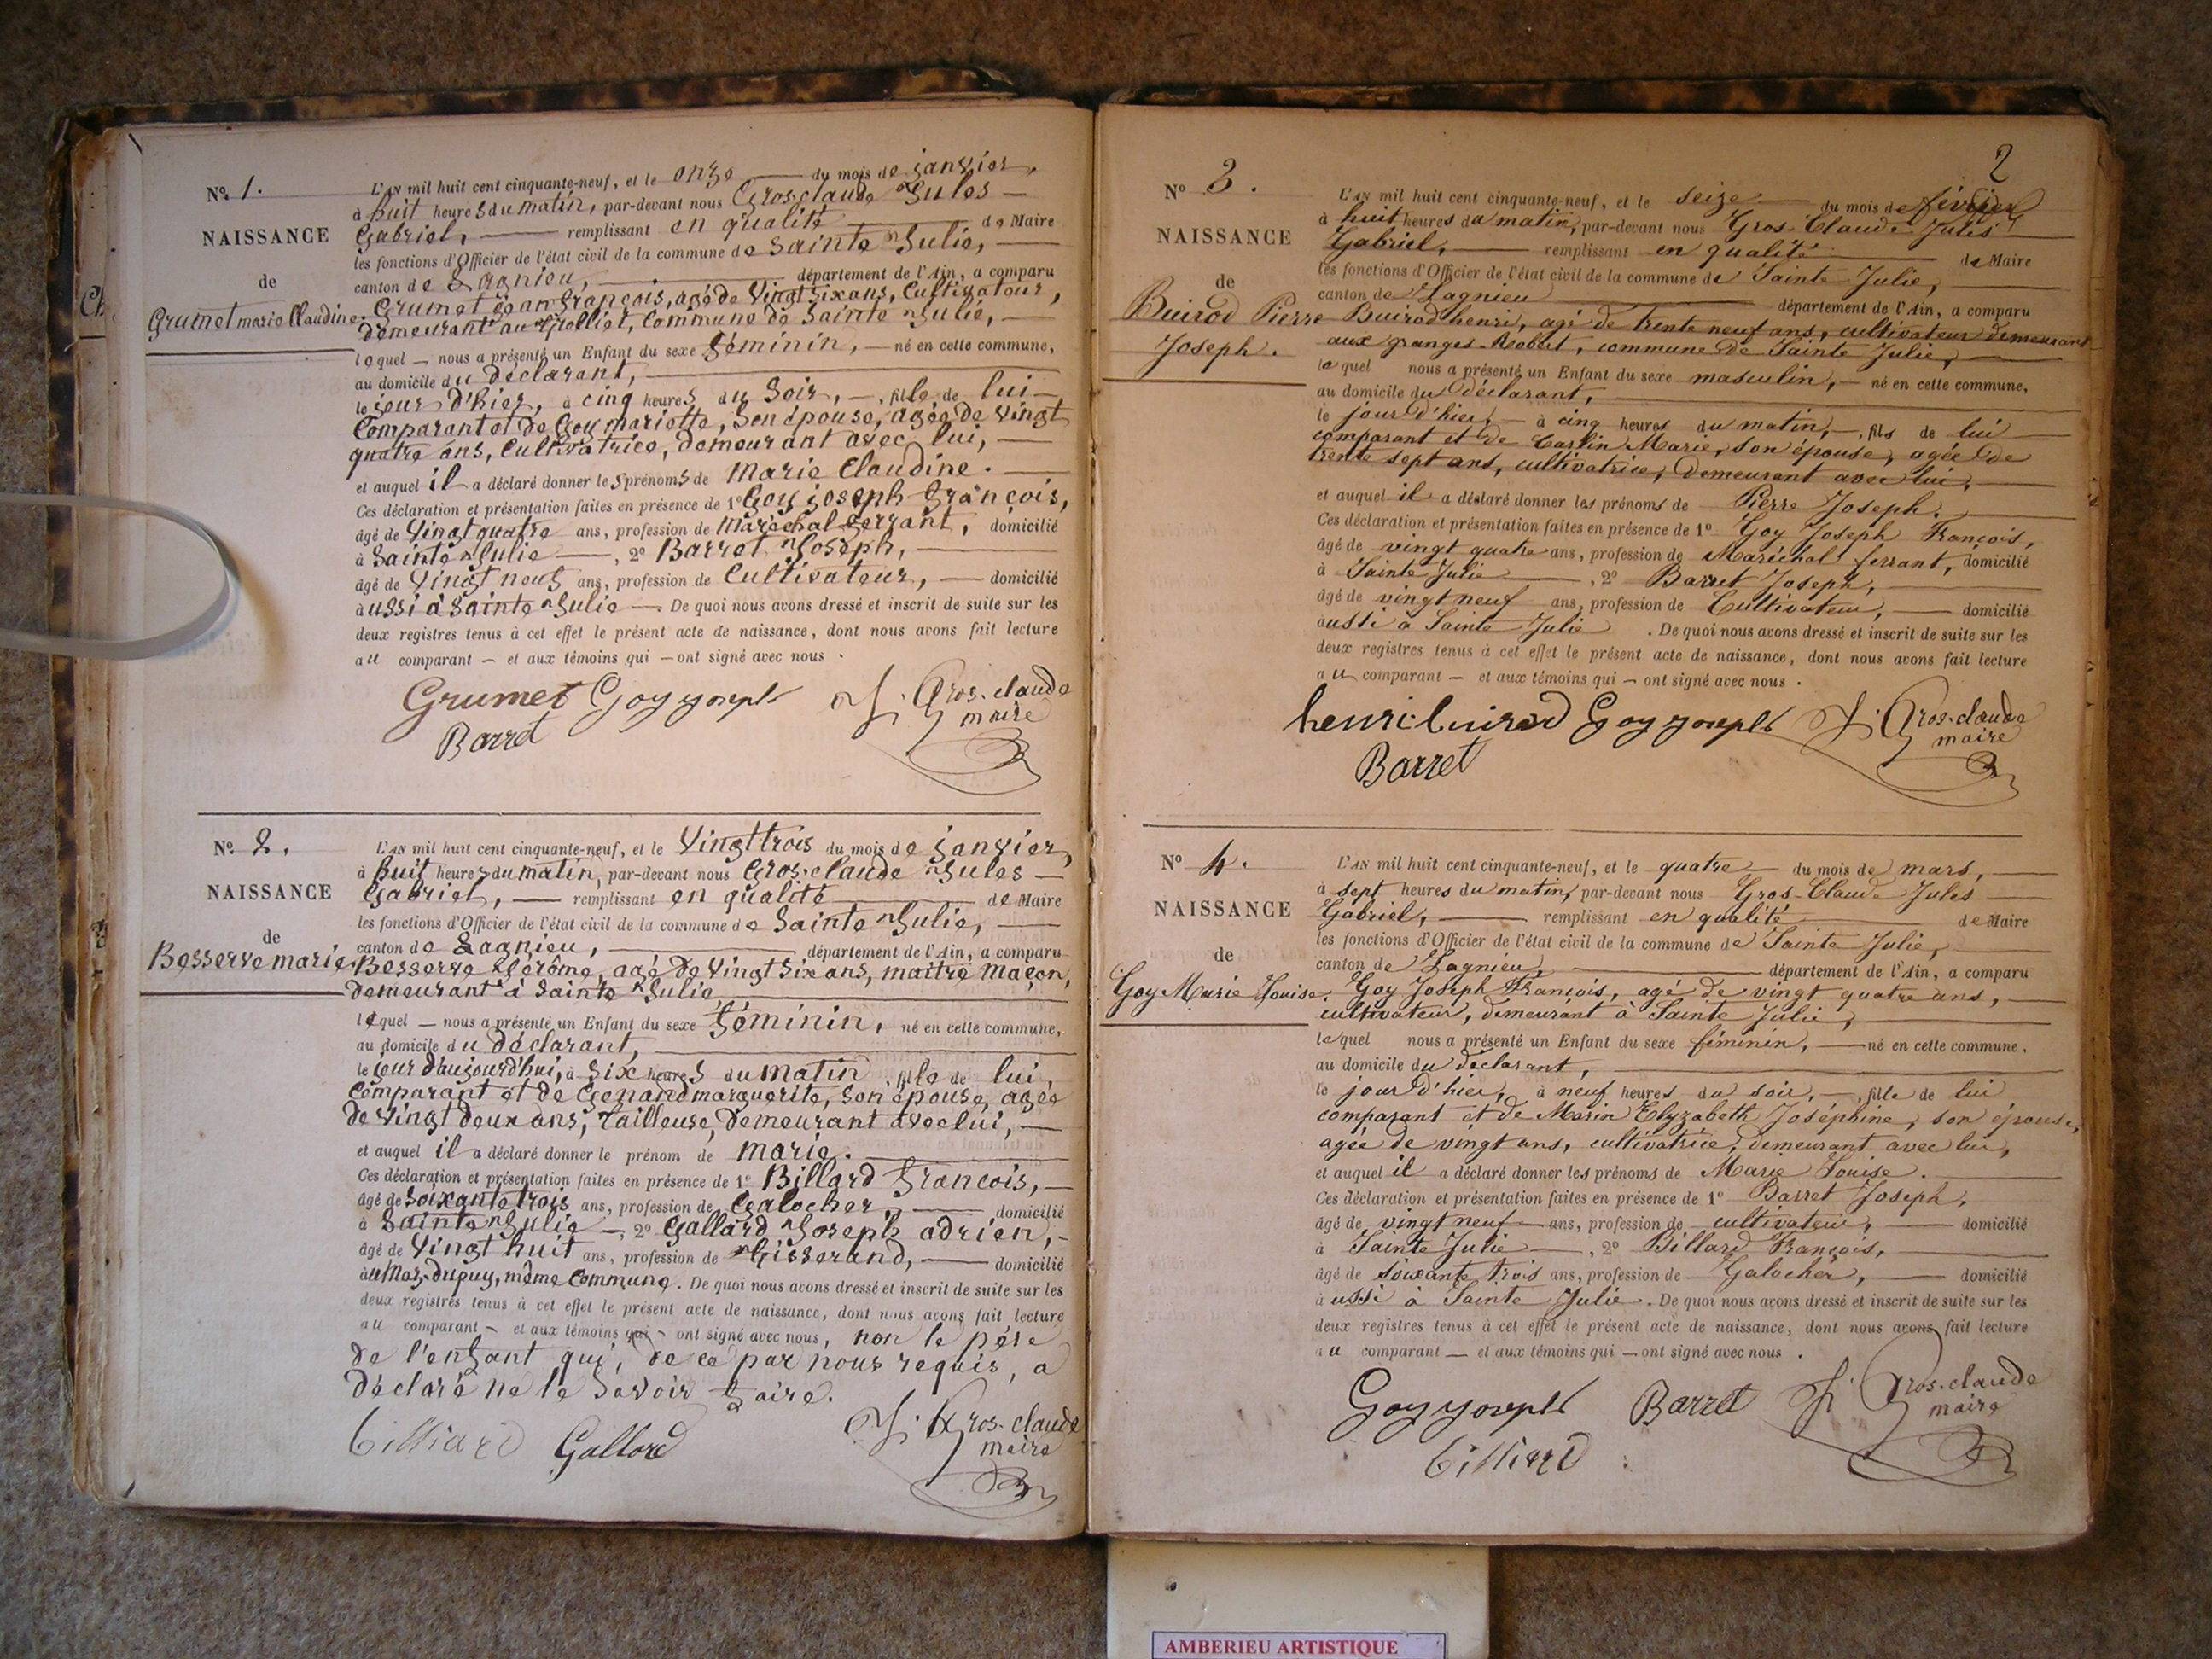 No 1.
NAISSANCE
de
Grumet marie Claudine.
L'AN mil huit cent cinquante-neuf, et le onze du mois de janvier,
à huit heures du matin, par-devant nous Gros-claude Jules
Gabriel, remplissant en qualité de Maire
les fonctions d'Officier de l'état civil de la commune de Sainte Julie,
canton de Lagnieu, département de l'Ain, a comparu
Grumet jean françois, agé de vingt six ans, Cultivateur,
demeurant au Commune de Sainte Julie,
lequel nous a présenté un Enfant du sexe féminin, né en cette commune,
au domicile du déclarant,
le jour d'hier, à cinq heures du soir, fille de lui
Comparant et de Goy mariette, son épouse, agée de vingt
quatre ans, Cultivatrice, demeurant avec lui,
et auquel il a déclaré donner les prénoms de Marie Claudine.
Ces déclaration et présentation faites en présence de 1º Goy joseph françois,
âgé de vingt quatre ans, profession de Maréchal ferrant, domicilié
à Sainte Julie, 2º Barret Joseph,
âgé de vingt neuf ans, profession de Cultivateur, domicilié
aussi à Sainte Julie. De quoi nous avons dressé et inscrit de suite sur les
deux registres tenus à cet effet le présent acte de naissance, dont nous avons fait lecture
au comparant et aux témoins qui ont signé avec nous.
Grumet Goy joseph J. Gros-claude
Barret maire
No 2.
NAISSANCE
de
Besserve marie.
L'AN mil huit cent cinquante-neuf, et le vingt trois du mois de janvier,
à huit heures du matin, par-devant nous Gros-claude Jules
Gabriel, remplissant en qualité de Maire
les fonctions d'Officier de l'état civil de la commune de Sainte Julie,
canton de Lagnieu, département de l'Ain, a comparu
Besserve Jérôme, agé de vingt six ans, maitre maçon,
demeurant à Sainte Julie
lequel nous a présenté un Enfant du sexe féminin, né en cette commune,
au domicile du déclarant,
le jour d'aujourd'hui, à six heures du matin, fille de lui,
comparant et de Genand marguerite, son épouse, agée
de vingt deux ans, Tailleuse, demeurant avec lui,
et auquel il a déclaré donner le prénom de marie.
Ces déclaration et présentation faites en présence de 1º Billard françois,
âgé de soixante trois ans, profession de Galocher, domicilié
à Sainte Julie, 2º Gallard Joseph adrien,
âgé de vingt huit ans, profession de Tisserand, domicilié
au Mas-dupuy, même Commune. De quoi nous avons dressé et inscrit de suite sur les
deux registres tenus à cet effet le présent acte de naissance, dont nous avons fait lecture
au comparant et aux témoins qui ont signé avec nous, non le père
de l'enfant qui, de ce par nous requis, a
déclaré ne le savoir faire.
billiard Gallard J. Gros-claude
maire
2
No 3.
NAISSANCE
de
Buirod Pierre
Joseph.
L'AN mil huit cent cinquante-neuf, et le seize du mois de février
à huit heures du matin, par-devant nous Gros-Claude Jules
Gabriel, remplissant en qualité de Maire
les fonctions d'Officier de l'état civil de la commune de Sainte Julie,
canton de Lagnieu département de l'Ain, a comparu
Buirod henri, agé de trente neuf ans, cultivateur demeurant
aux granges-Robert, commune de Sainte Julie,
lequel nous a présenté un Enfant du sexe masculin, né en cette commune,
au domicile du déclarant,
le jour d'hier, à cinq heures du matin, fils de lui
comparant et de Carlin Marie, son épouse, agée de
trente sept ans, cultivatrice, demeurant avec lui,
et auquel il a déclaré donner les prénoms de Pierre Joseph.
Ces déclaration et présentation faites en présence de 1º Goy Joseph François,
âgé de vingt quatre ans, profession de Maréchal ferrant, domicilié
à Sainte Julie, 2º Barret Joseph,
âgé de vingt neuf ans, profession de Cultivateur, domicilié
aussi à Sainte Julie. De quoi nous avons dressé et inscrit de suite sur les
deux registres tenus à cet effet le présent acte de naissance, dont nous avons fait lecture
au comparant et aux témoins qui ont signé avec nous.
henri buirod Goy joseph J. Gros-claude
Barret maire
No 4.
NAISSANCE
de
Goy Marie Louise.
L'AN mil huit cent cinquante-neuf, et le quatre du mois de mars,
à sept heures du matin, par-devant nous Gros-Claude Jules
Gabriel, remplissant en qualité de Maire
les fonctions d'Officier de l'état civil de la commune de Sainte Julie,
canton de Lagnieu, département de l'Ain, a comparu
Goy Joseph François, agé de vingt quatre ans,
cultivateur, demeurant à Sainte Julie,
lequel nous a présenté un Enfant du sexe féminin, né en cette commune,
au domicile du déclarant,
le jour d'hier, à neuf heures du soir, fille de lui
comparant et de Marin Elyzabeth Joséphine, son épouse,
agée de vingt ans, cultivatrice, demeurant avec lui,
et auquel il a déclaré donner les prénoms de Marie Louise.
Ces déclaration et présentation faites en présence de 1º Barret Joseph,
âgé de vingt neuf ans, profession de cultivateur, domicilié
à Sainte Julie, 2º Billard François,
âgé de soixante trois ans, profession de Galocher, domicilié
aussi à Sainte Julie. De quoi nous avons dressé et inscrit de suite sur les
deux registres tenus à cet effet le présent acte de naissance, dont nous avons fait lecture
au comparant et aux témoins qui ont signé avec nous.
Goy joseph Barret J. Gros-claude
billiard maire
AMBERIEU ARTISTIQUE